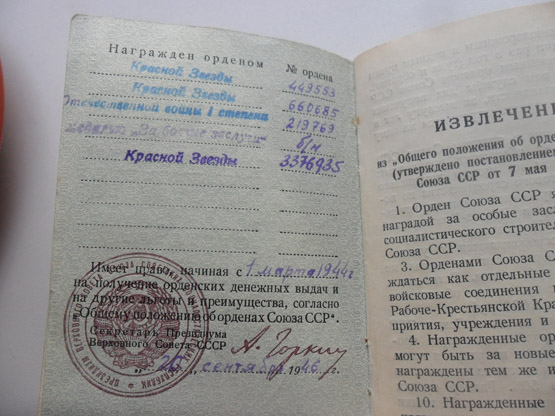 Награжден орденом
№ ордена
Красной Звезды 449553
Красной Звезды 660685
Отечественной войны I степени 219769
медалью „За боевые заслуги“ б/н
Красной Звезды 3376935
Имеет право начиная с 1 марта 1944 г
на получение орденских денежных выдач и
на другие льготы и преимущества, согласно
"Общему положению об орденах Союза ССР".
Секретарь Президиума
Верховного Совета СССР
А. Горкин
сентября 1946 г.
ИЗВЛЕЧЕНИ
из „Общего положения об орде
(утверждено постановление
Союза ССР от 7 мая
1. Орден Союза ССР я
наградой за особые засл
социалистического строител
Союза ССР.
3. Орденами Союза С
ждаться как отдельные
войсковые соединения
Рабоче-Крестьянской Кра
приятия, учреждения и
4. Награжденные ор
могут быть за новые
награждены тем же и
Союза ССР.
10. Награжденные